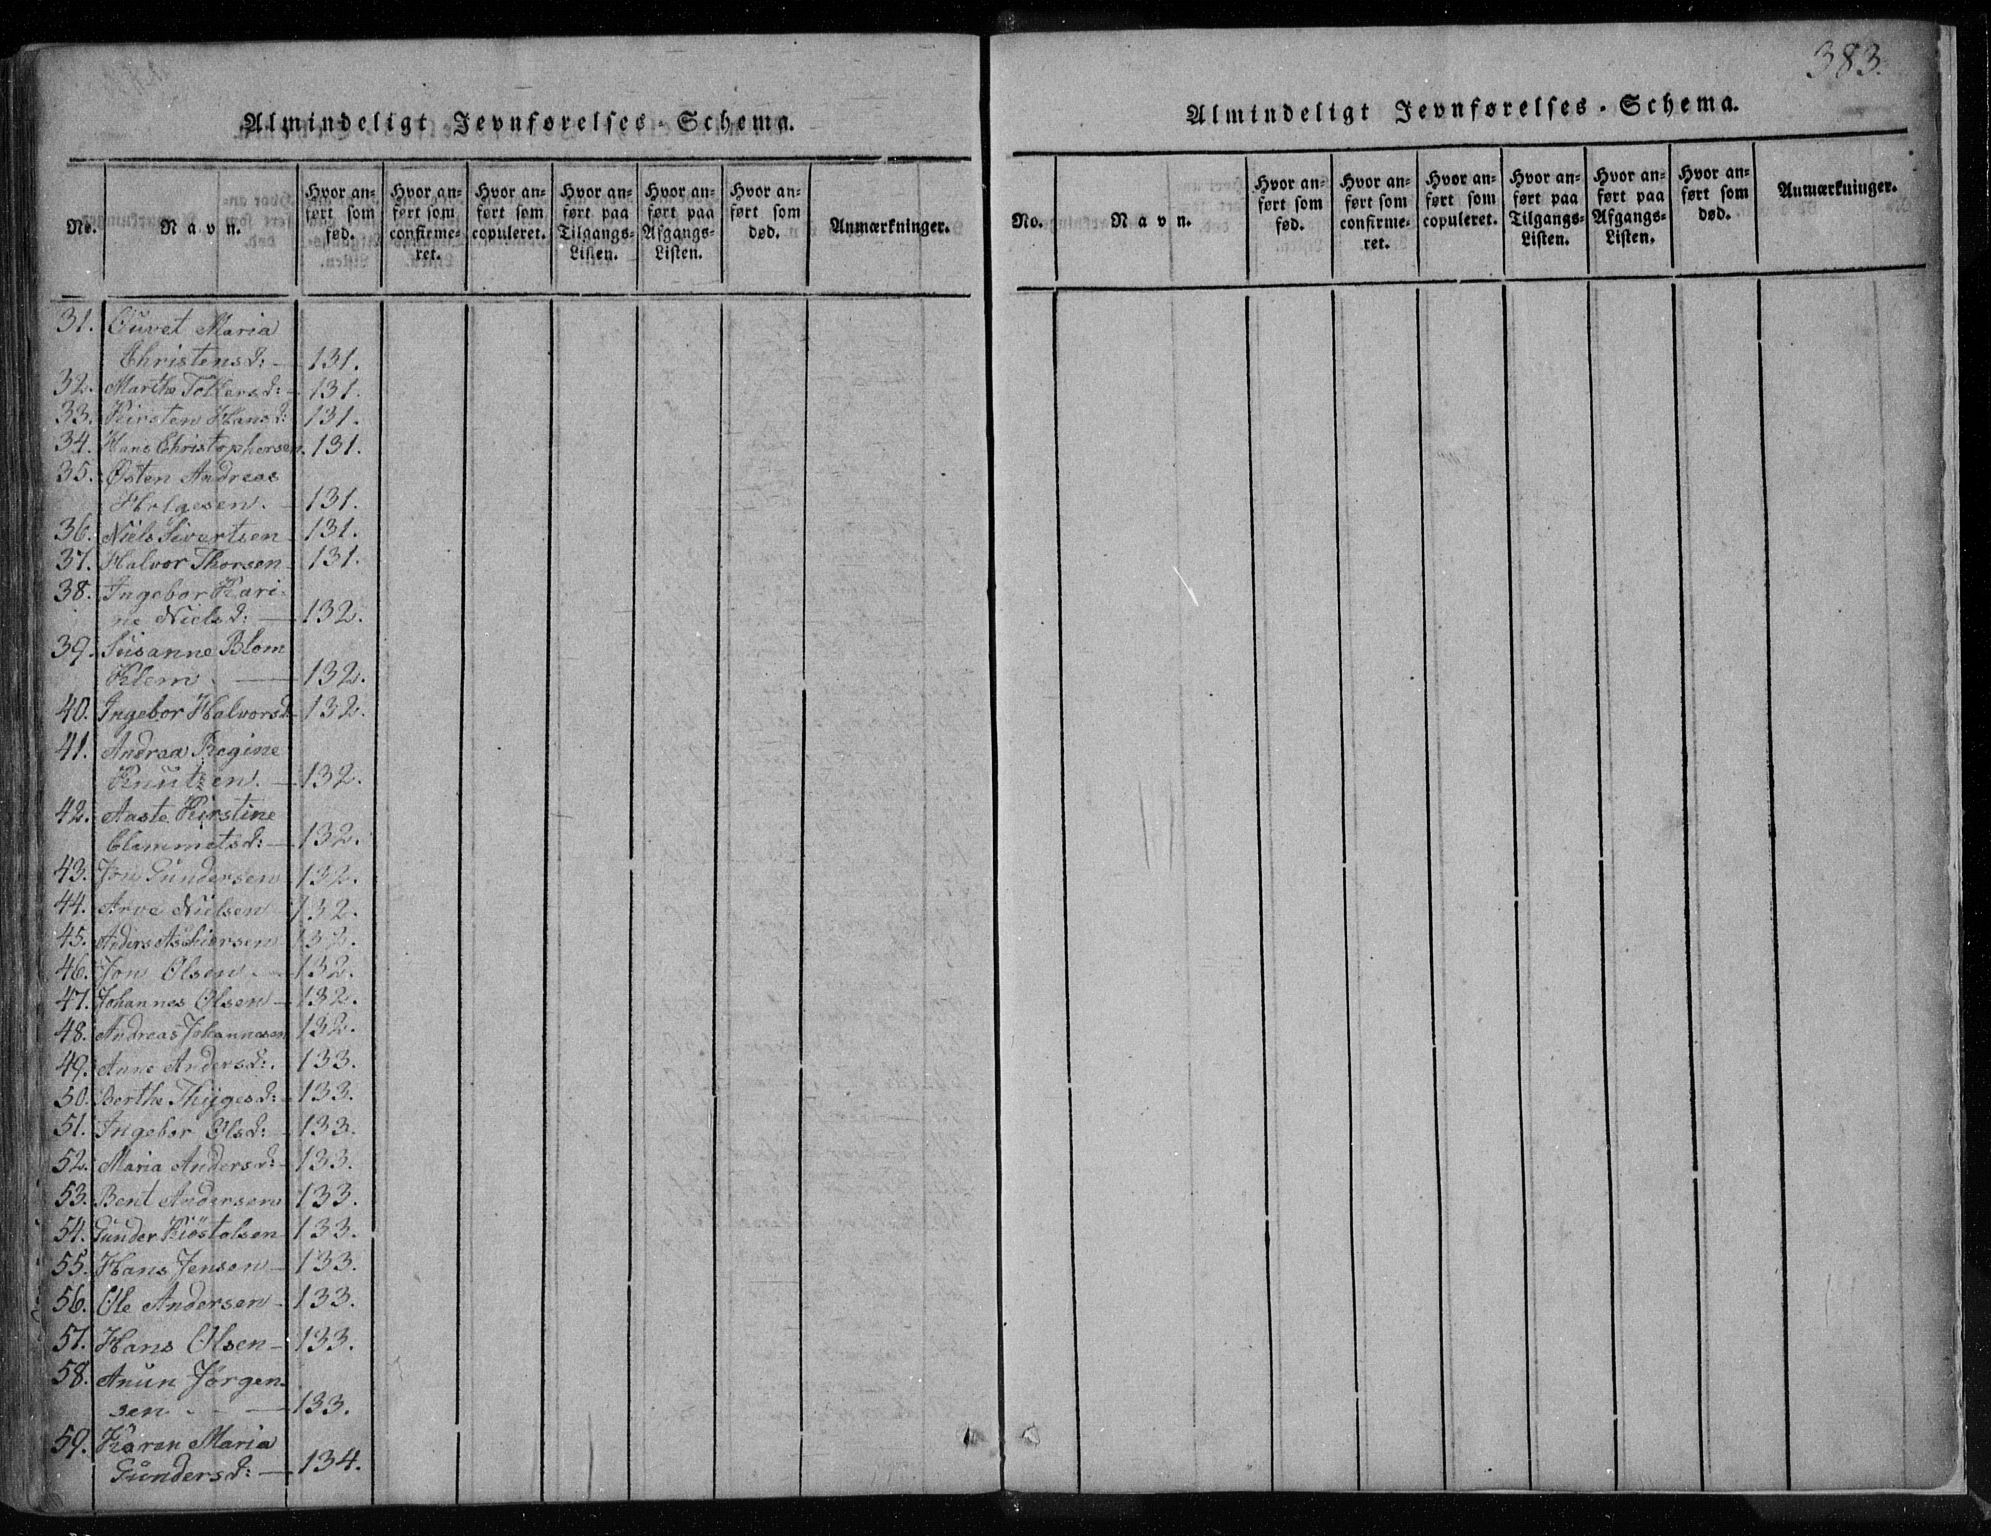 383.
Almindeligt Jevnførelses-Schema.
No. Navn. Hvor anført som fød. Hvor anført som confirmeret. Hvor anført som copuleret. Hvor anført paa Tilgangs-Listen. Hvor anført paa Afgangs-Listen. Hvor anført som død. Anmærkninger.
31. Maria
Christensd: 131.
32. Marthe Tollersd: 131.
33. Kirsten Hansd: 131.
34. Hans Christophersen. 131.
35. Östen Andreas
Helgesen. 131.
36. Niels Sivertsen 131.
37. Halvor Thorsen 131.
38. Ingebor Kari-
ne Nielsd: 132.
39. Susanne Blom
Klem. 132.
40. Ingebor Halvorsd 132.
41. Andrea Regine
Knutzen. 132.
42. Aaste Kirstine
Clemmetsd: 132.
43. Jon Gundersen 132.
44. Arve Nielsen 132.
45. Anders 132.
46. Jon Olsen 132.
47. Johannes Olsen 132.
48. Andreas Johannesen 132.
49. Anne Andersd: 133.
50. Berthe Thygesd: 133.
51. Ingebor Olsd: 133.
52. Maria Andersd: 133.
53. Bent Andersen 133.
54. Gunder Kiöstolsen 133.
55. Hans Jensen 133.
56. Ole Andersen 133.
57. Hans Olsen 133.
58. Anun Jörgen-
sen 133.
59. Karen Maria
Gundersd: 134.
Almindeligt Jevnførelses-Schema.
No. Navn. Hvor anført som fød. Hvor anført som confirmeret. Hvor anført som copuleret. Hvor anført paa Tilgangs-Listen. Hvor anført paa Afgangs-Listen. Hvor anført som død. Anmærkninger.